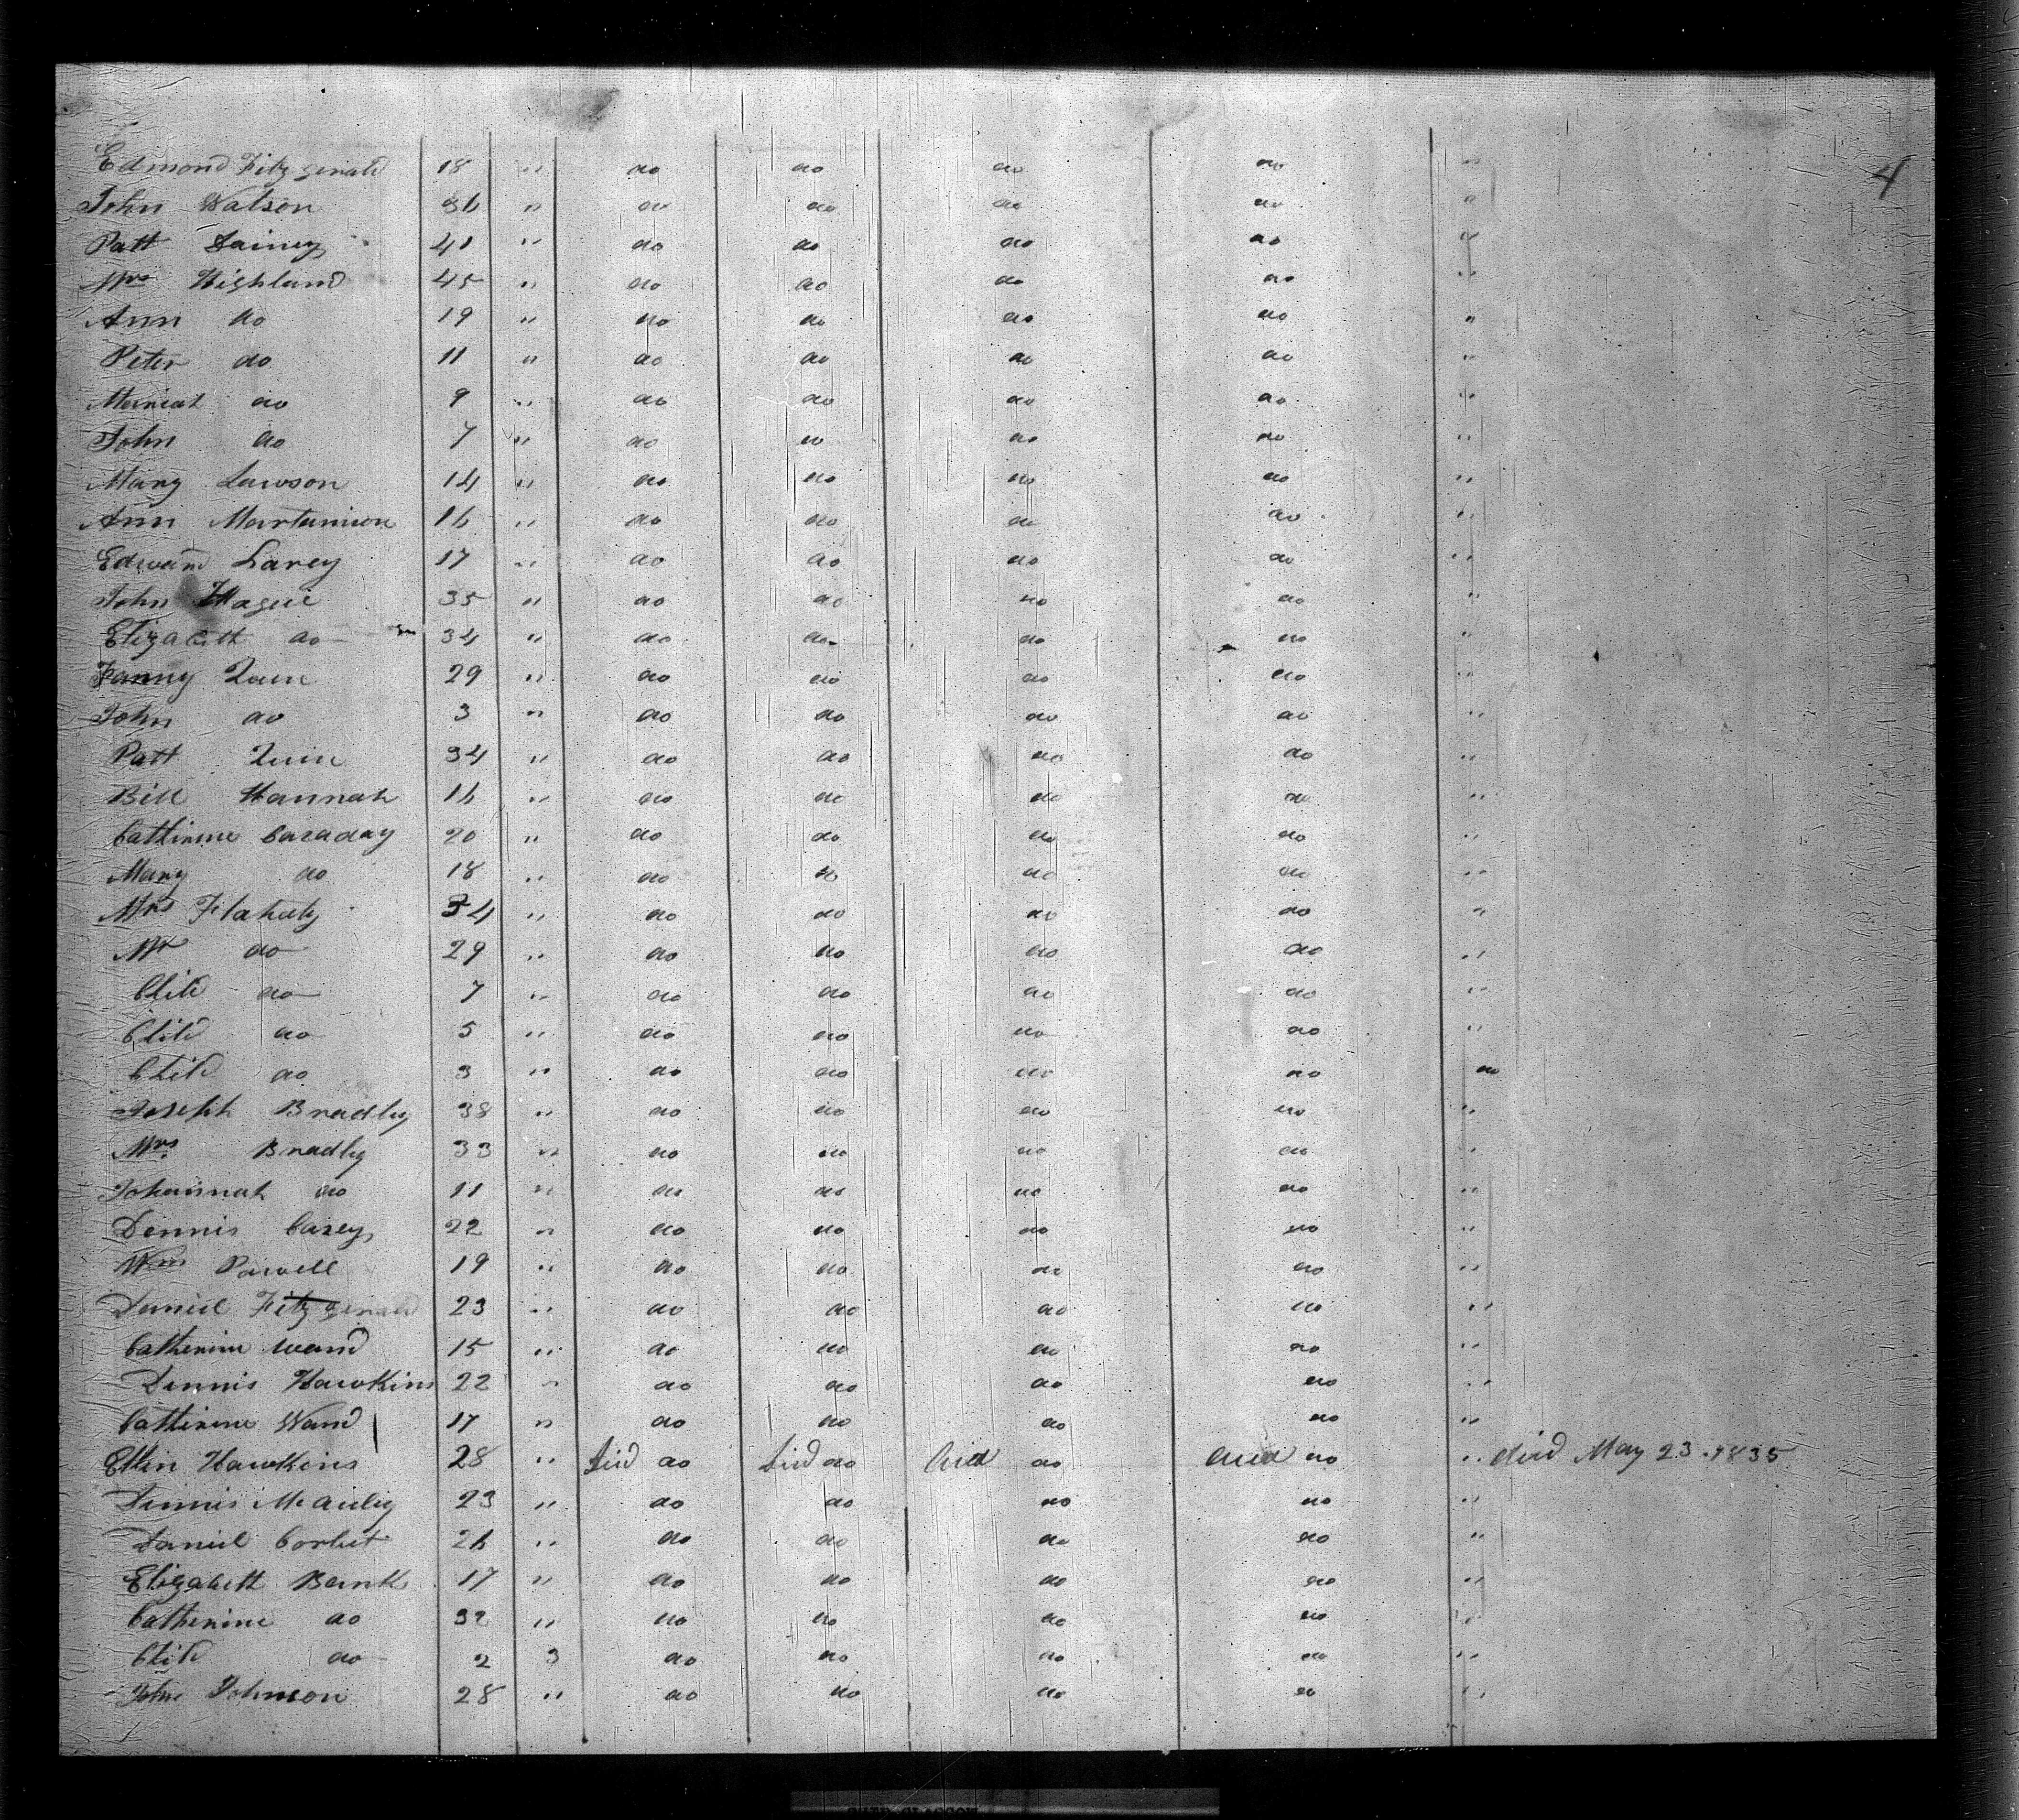 4
Edmond Fitzgerald 18 " do do do do "
John Watson 36 " do do do do "
Patt Lainey 41 " do do do do "
Mrs Highland 45 " do do do do "
Ann do 19 " do do do do "
Peter do 11 " do do do do "
Mariah do 9 " do do do do "
John do 7 " do do do do "
Mary Lawson 14 " do do do do "
Ann 16 " do do do do "
Edward Larey 17 " do do do do "
John Hague 35 " do do do do "
Elizabeth do 34 " do do do do "
Fanny Quin 29 " do do do do "
John do 3 " do do do do "
Patt Quin 34 " do do do do "
Bill Hannah 16 " do do do do "
Cathirine Caraday 20 " do do do do "
Mary do 18 " do do do do "
Mrs Flahaty 34 " do do do do "
Mr do 29 " do do do do "
Child do 7 " do do do do "
Child do 5 " do do do do "
Child do 3 " do do do do do
Joseph Bradley 38 " do do do do "
Mrs. Bradley 33 " do do do do "
Johannah do 11 " do do do do "
Dennis Casey 22 " do do do do "
Wm Powell 19 " do do do do "
Daniel Fitzgerald 23 " do do do do "
Catherine Ward 15 " do do do do "
Dennis Hawkins 22 " do do do do "
Cathirine Ward 17 " do do do do "
Ellin Hawkins 28 " died do died do died do died do " died May 23. 1835
Dennis McAuley 23 " do do do do "
Daniel Corbet 26 " do do do do "
Elizabeth Bank 17 " do do do do "
Catherine do 32 " do do do do "
Child do 2 3 do do do do "
John Johnson 28 " do do do do "